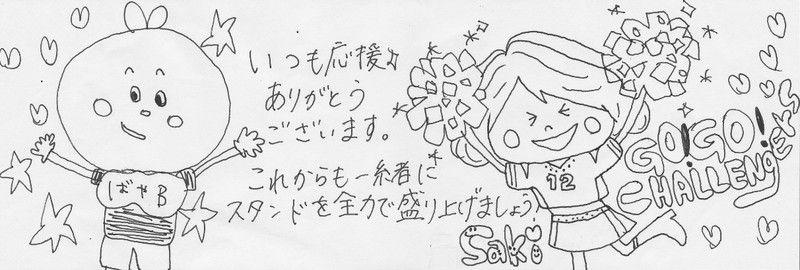 いつも応援♪
ありがとう
ございます。
これからも一緒に
スタンドを全力で盛り上げましょう!
ばやB
12
Saki
GO!GO!
CHALLENGERS